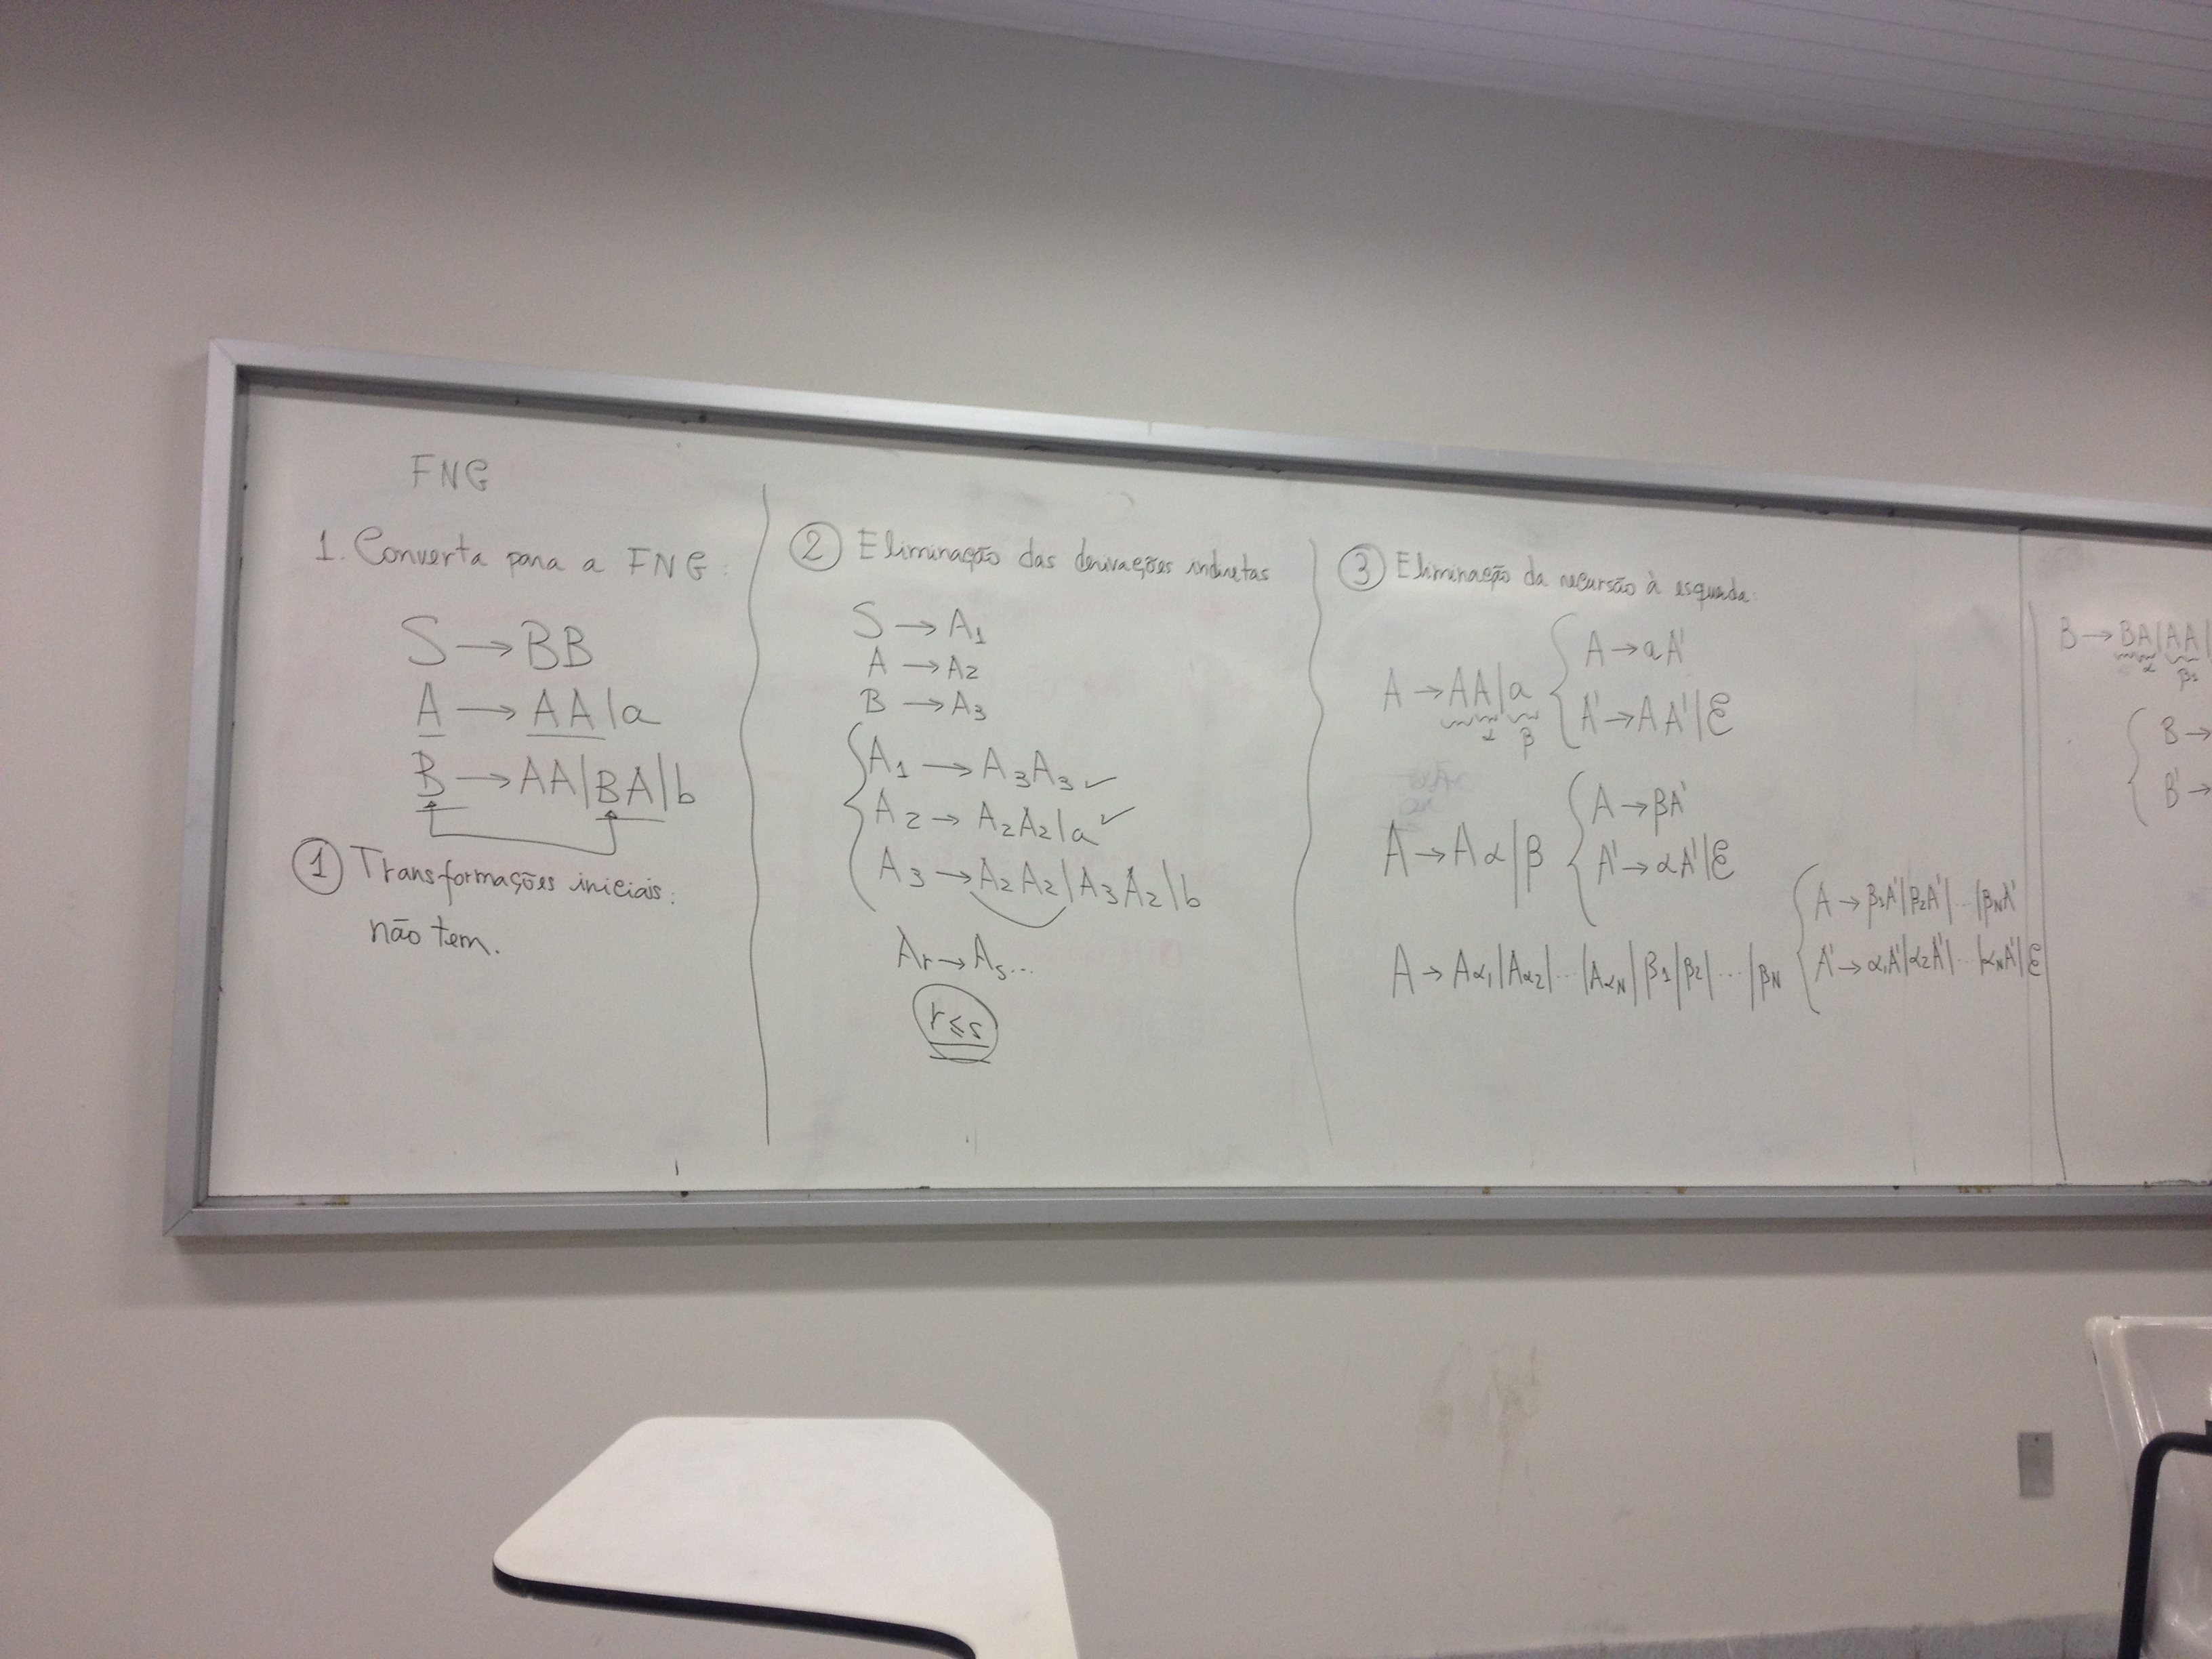 FNG
1. Converta para a FNG:
S → BB
A → AA|a
B → AA|BA|b
① Transformações iniciais:
não tem.
② Eliminação das derivações indiretas
S → A₁
A → A₂
B → A₃
A₁ → A₃A₃ ✓
A₂ → A₂A₂|a ✓
A₃ → A₂A₂|A₃A₂|b
Ar → As...
r ≤ s
③ Eliminação da recursão à esquerda:
A → AA|a
α β
A → aA'
A' → AA'|ε
A → Aα|β
A → βA'
A' → αA'|ε
A → Aα₁|Aα₂|...|Aα_N|β₁|β₂|...|β_N
A → β₁A'|β₂A'|...|β_NA'
A' → α₁A'|α₂A'|...|α_NA'|ε
B → BA|AA|
α β₁
B →
B' →